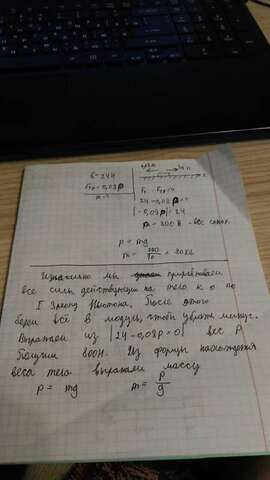 F=24Н
Fтр=0,03P
m-?
Fт - Fтр = 0
24-0,03P=0
|-0,03P|=24
P=800Н - вес санок
p = mg
m = 800/10 = 80кг
Изначально мы приравниваем
все силы действующие на тело к 0 по
I Закону Ньютона. После этого
берем всё в модуль, чтобы убрать минус.
Выражаем из |24-0,03P=0| вес P
Получим 800Н. Из формулы нахождения
веса тела выражаем массу
p = mg m = P/g